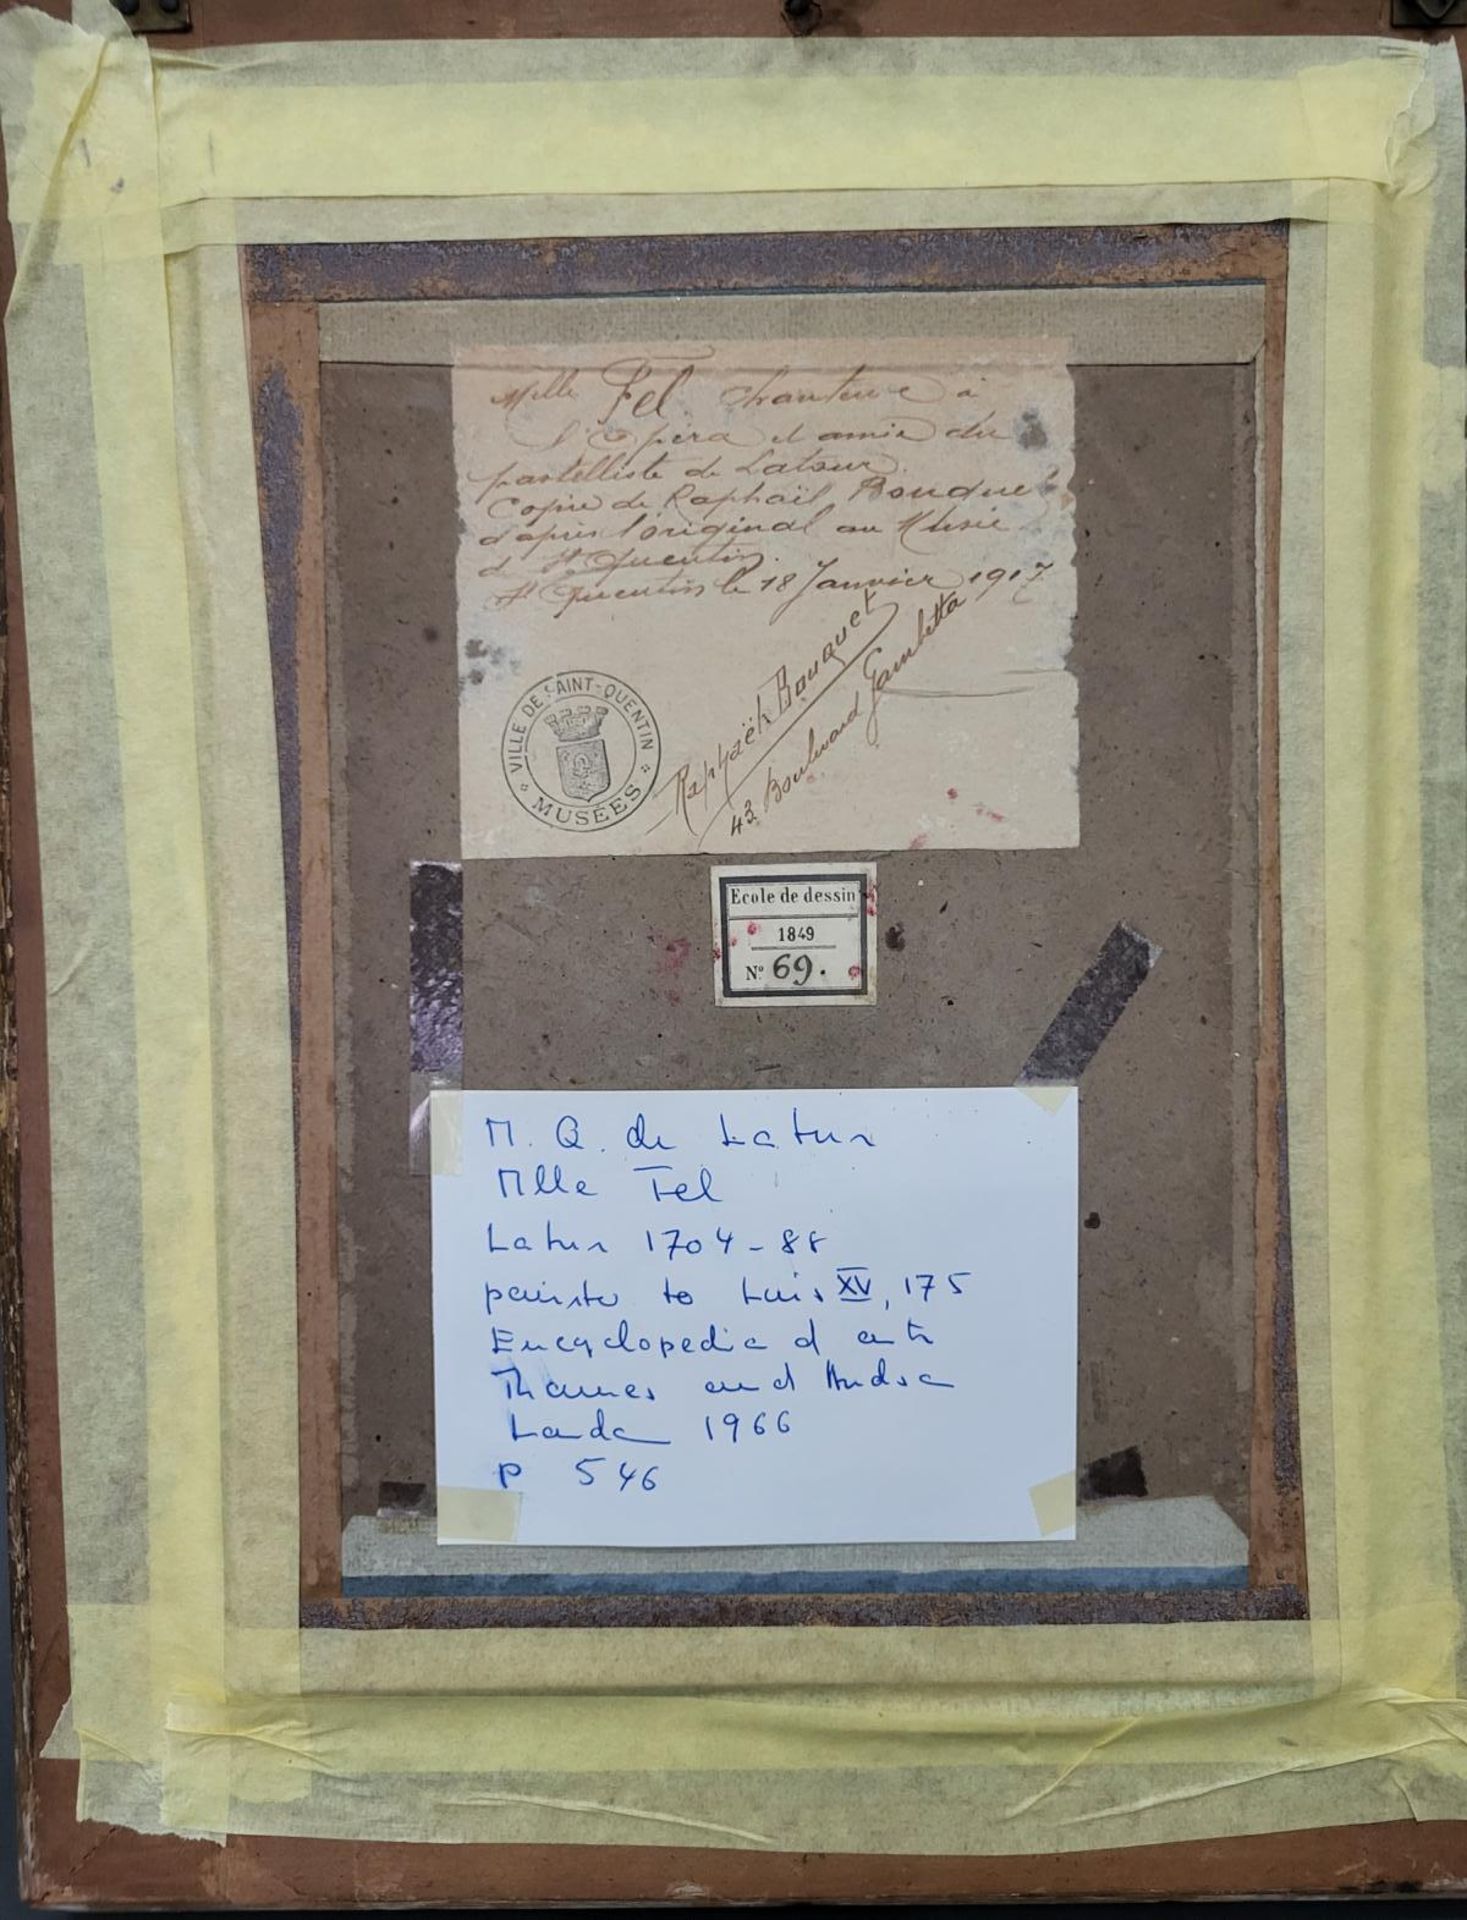 Melle Fel. Chanteuse à
l'Opéra et amie du
pastelliste de Latour.
Copie de Raphaël Bouquet
d'après l'original au Musée
de St Quentin.
St Quentin le 18 Janvier 1917
Raphaël Bouquet
43 Boulevard Gambetta
VILLE DE SAINT-QUENTIN
MUSÉES
Ecole de dessin
1849
N° 69.
M. Q. de Latur
Mlle Fel
Latur 1704-88
painter to Luis XV, 175
Encyclopedia of art
Thames and Hudson
London 1966
p 546